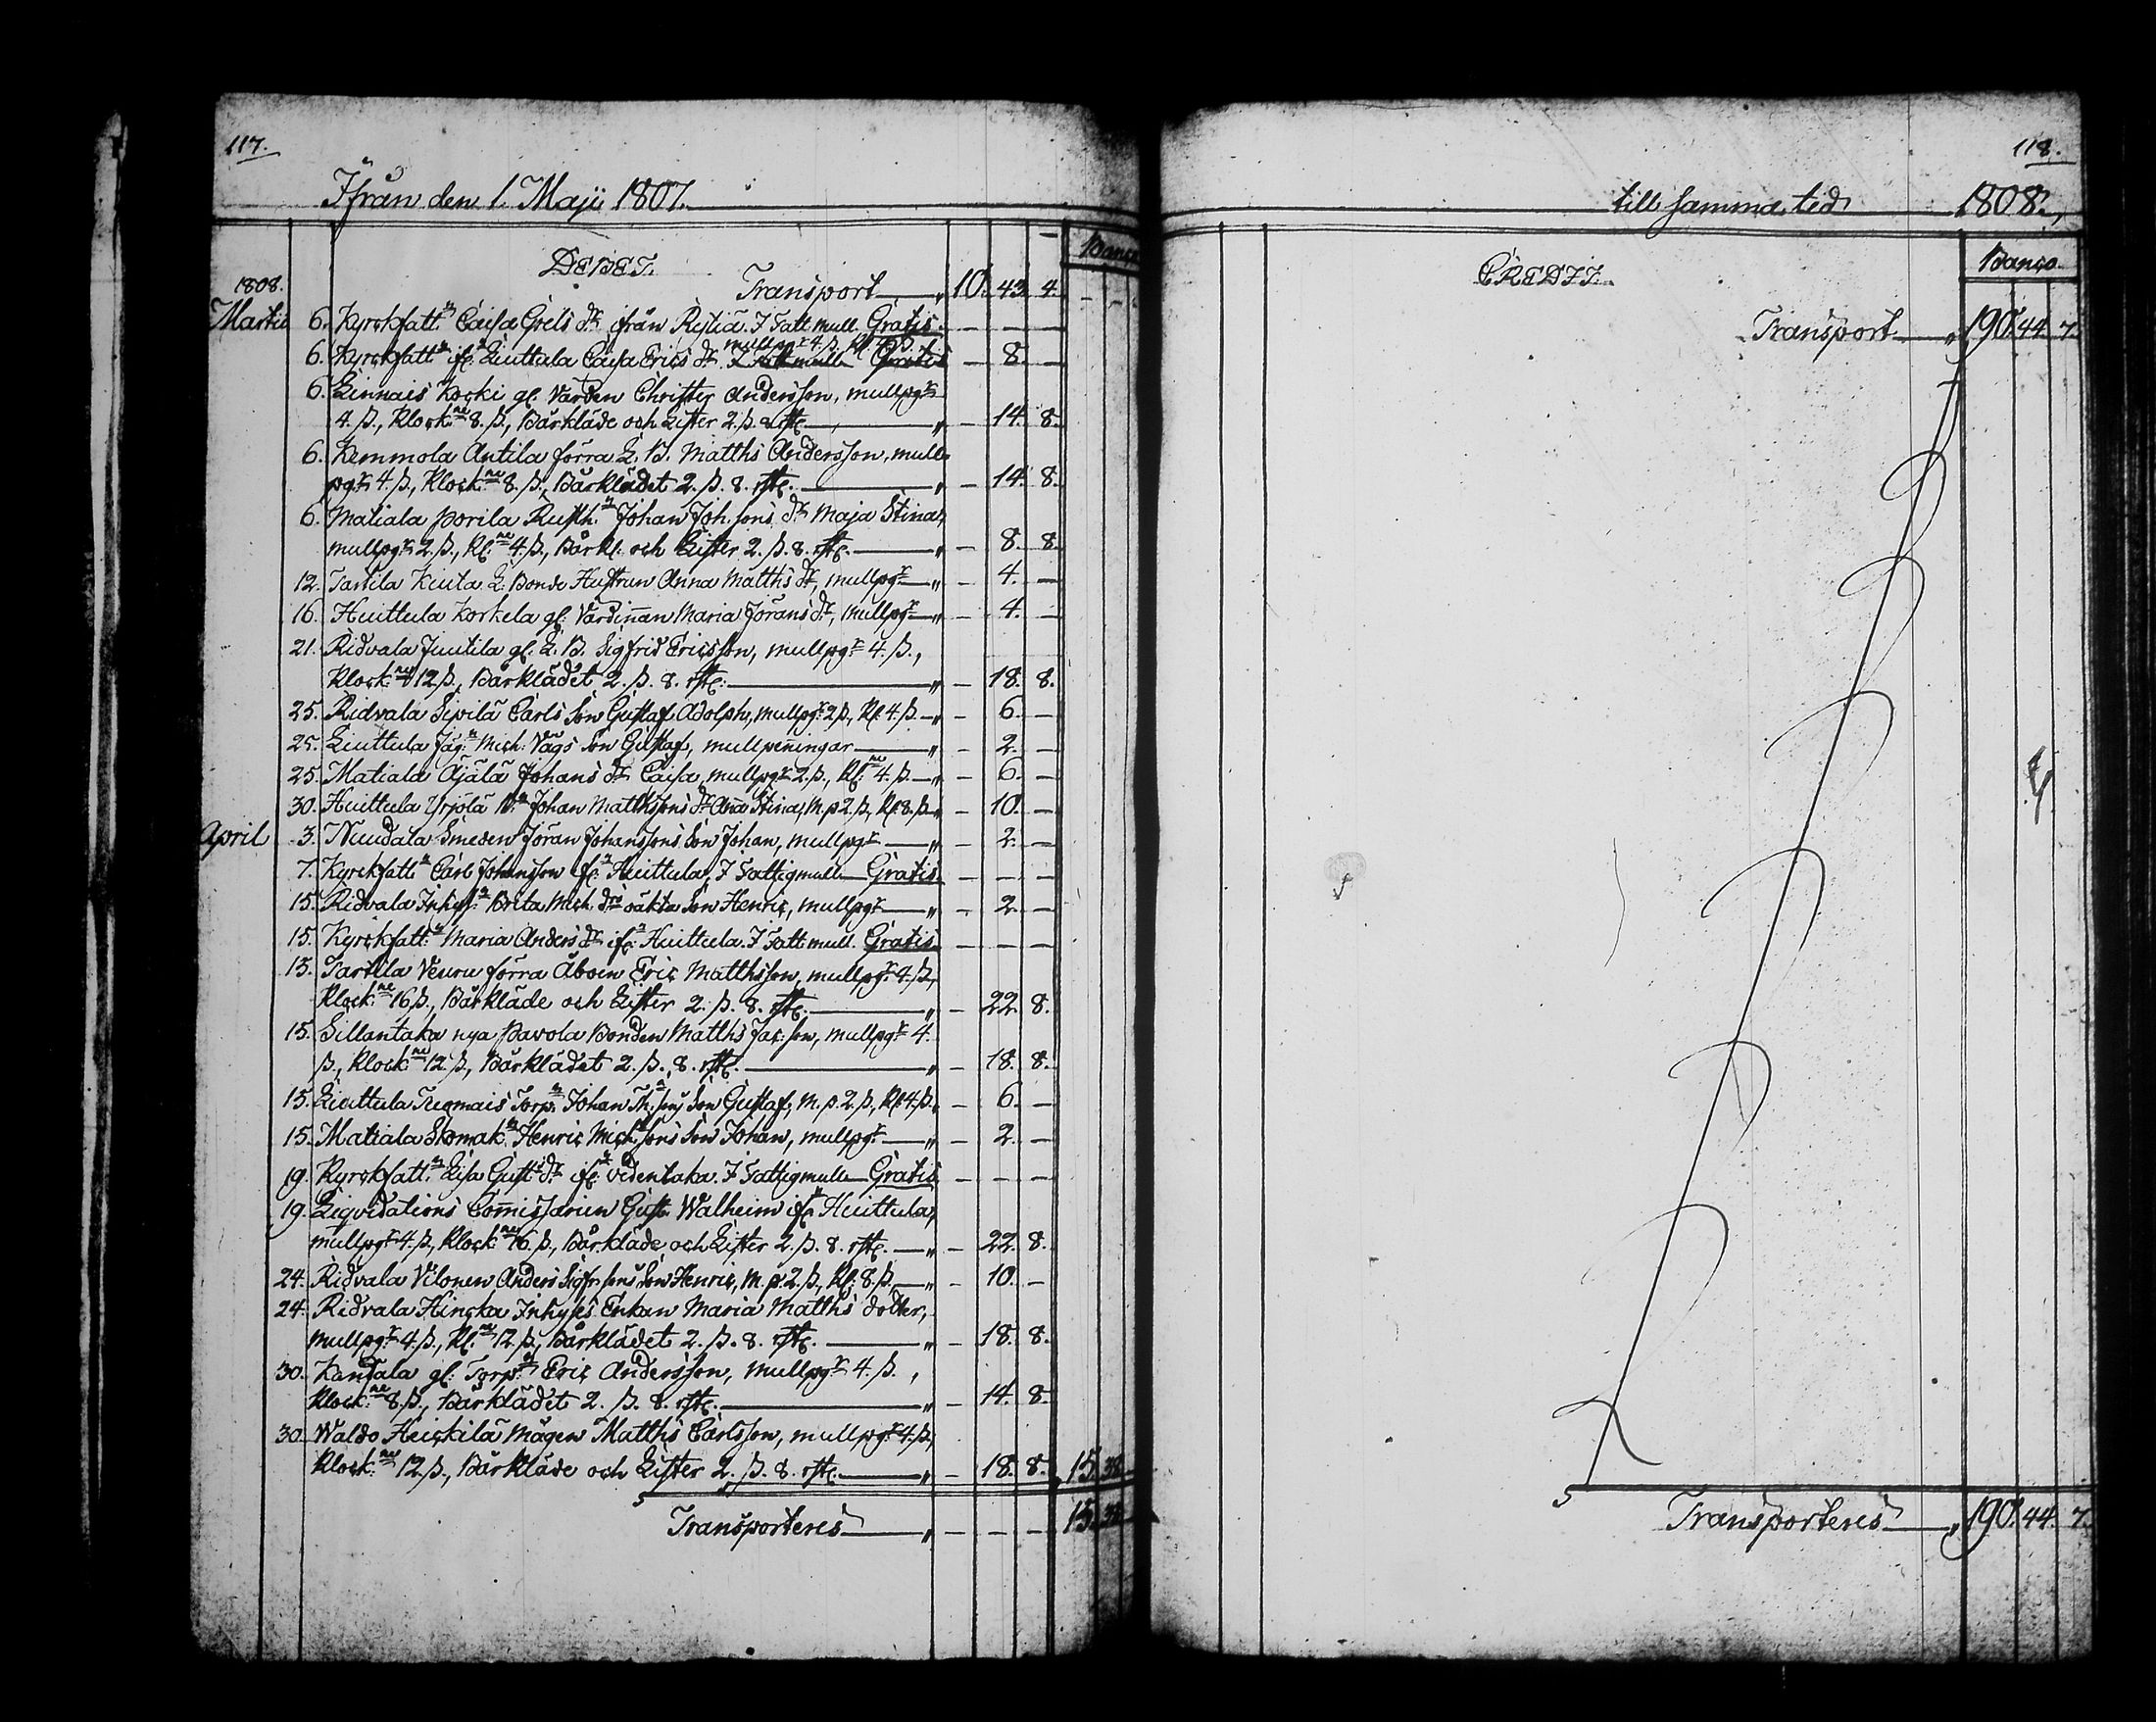 117.
Ifrån den 1. Maji 1807.
DEBET.
Banco
1808.
Transport — „ 10. 43. 4.
Martii 6. Kyrckfatt:n Caisa Grels dr ifrån Ristiä. I Fatt mull. Gratis. — — —
mullpgr 4. ß. Kl. 4. ß.
6. Kyrckfatt:n if:n Liuttula Caisa Erics dr I Fatt mull Gratis — 8. —
6. Linnais Kocki gl. Värden Christer Andersson, mullpgr
4. ß., Klock:ne 8. ß., Bårkläde och Lister 2. ß. 8. rst. — „ — 14. 8.
6. Kemmola Antila förra L. B. Matths Andersson, mull=
pgr 4. ß., Klock:ne 8. ß., Bårklädet 2. ß. 8. rst. — „ — 14. 8.
6. Matiala Porila Rusth:n Johan Joh. sons dr Maja Stina,
mullpgr 2. ß., Kl:ne 4. ß., Bårkl. och Lister 2. ß. 8. rst. — „ — 8. 8.
12. Tarttila Kiuta L. Bonde Hustrun Anna Matths dr, mullpgr — „ — 4. —
16. Huittula Korkela gl. Värdiñan Maria Jörans dr, mullpgr — „ — 4. —
21. Ridvala Juutila gl. L. B. Sigfrid Ericsson, mullpgr 4. ß.,
Klock:ne 12 ß., Bårklädet 2. ß. 8. rst. — „ — 18. 8.
25. Ridvala Sipilä Carls Son Gustaf Adolph, mullpgr 2 ß., Kl. 4. ß. — „ — 6. —
25. Liuttula Jäg:n Mich: Vägs Son Gustaf, mullpeñingar — „ — 2. —
25. Matiala Äjälä Johans dr Caisa, mullpgr 2. ß., Kl:ne 4. ß. — „ — 6. —
30. Huittula Yrjölä B:n Johan Matthssons dr Aña Stina, M. p 2. ß, Kl. 8. ß — „ — 10. —
April 3. Nuudala Smeden Jöran Johanssons Son Johan, mullpgr — „ — 2. —
7. Kyrckfatt:n Carl Johansson if:n Huittula, I Fattigmull Gratis. — — —
15. Ridvala Inhys:n Brita Mich. drs oäkta Son Henric, mullpgr — „ — 2. —
15. Kyrckfatt:n Maria Anders dr if:n Huittula. I Fatt mull. Gratis — — —
15. Tarttila Veuru förra Åboen Eric Matthsson, mullpgr 4. ß.,
Klock:ne 16 ß., Bårkläde och Lister 2. ß. 8. rst. — „ — 22. 8.
15. Sillantaka nya Pavola Bonden Matths Jac: son, mullpgr 4.
ß., Klock:ne 12. ß., Bårklädet 2. ß., 8. rst. — „ — 18. 8.
15. Liuttula Tuomais Torp:n Johan Th:sons Son Gustaf, M. p. 2. ß., Kl. 4. ß. — 6. —
15. Matiala Skomak:n Henric Mich:sons Son Johan, mullpgr — „ — 2. —
19. Kyrckfatt:n Lisa Gust: dr if:n Vedentaka. I Fattigmull Gratis — — —
19. Liqvidations Com̄issarien Gust. Walheim if:n Huittula,
mullpgr 4. ß., Klock:ne 16. ß., Bårkläde och Lister 2. ß. 8. rst. — „ — 22. 8.
24. Ridvala Vilonen Anders Sigfr. sons Son Henric, M. p. 2. ß., Kl. 8. ß. — „ — 10. —
24. Ridvala Hincka Inhyses Enkan Maria Matths dotter,
mullpgr 4. ß., Kl:ne 12. ß., Bårklädet 2. ß. 8. rst. — „ — 18. 8.
30. Kandala gl: Torp:n Eric Andersson, mullpgr 4. ß.,
Klock:ne 8. ß., Bårklädet 2. ß. 8. rst. — „ — 14. 8.
30. Waldo Heickilä Mågen Matths Carlsson, mullpgr 4. ß.,
Klock:ne 12. ß., Bårkläde och Lister 2. ß. 8. rst. — „ — 18. 8. 15. 38.
Transporteres — „ — — — 15. 38.
118.
till samma tid 1808.
CREDIT.
Banco.
Transport — „ 190. 44. 7.
Transporteres — „ 190. 44. 7.